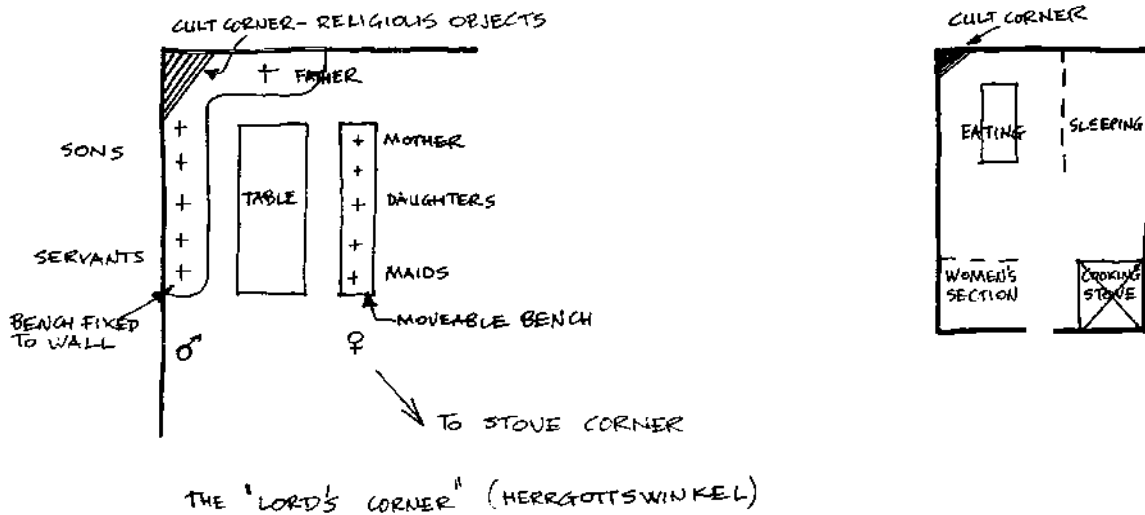 CULT CORNER - RELIGIOUS OBJECTS
FATHER
SONS
SERVANTS
BENCH FIXED
TO WALL
TABLE
MOTHER
DAUGHTERS
MAIDS
MOVEABLE BENCH
♂
♀
TO STOVE CORNER
THE "LORD'S CORNER" (HERRGOTTSWINKEL)
CULT CORNER
EATING
SLEEPING
WOMEN'S
SECTION
COOKING
STOVE